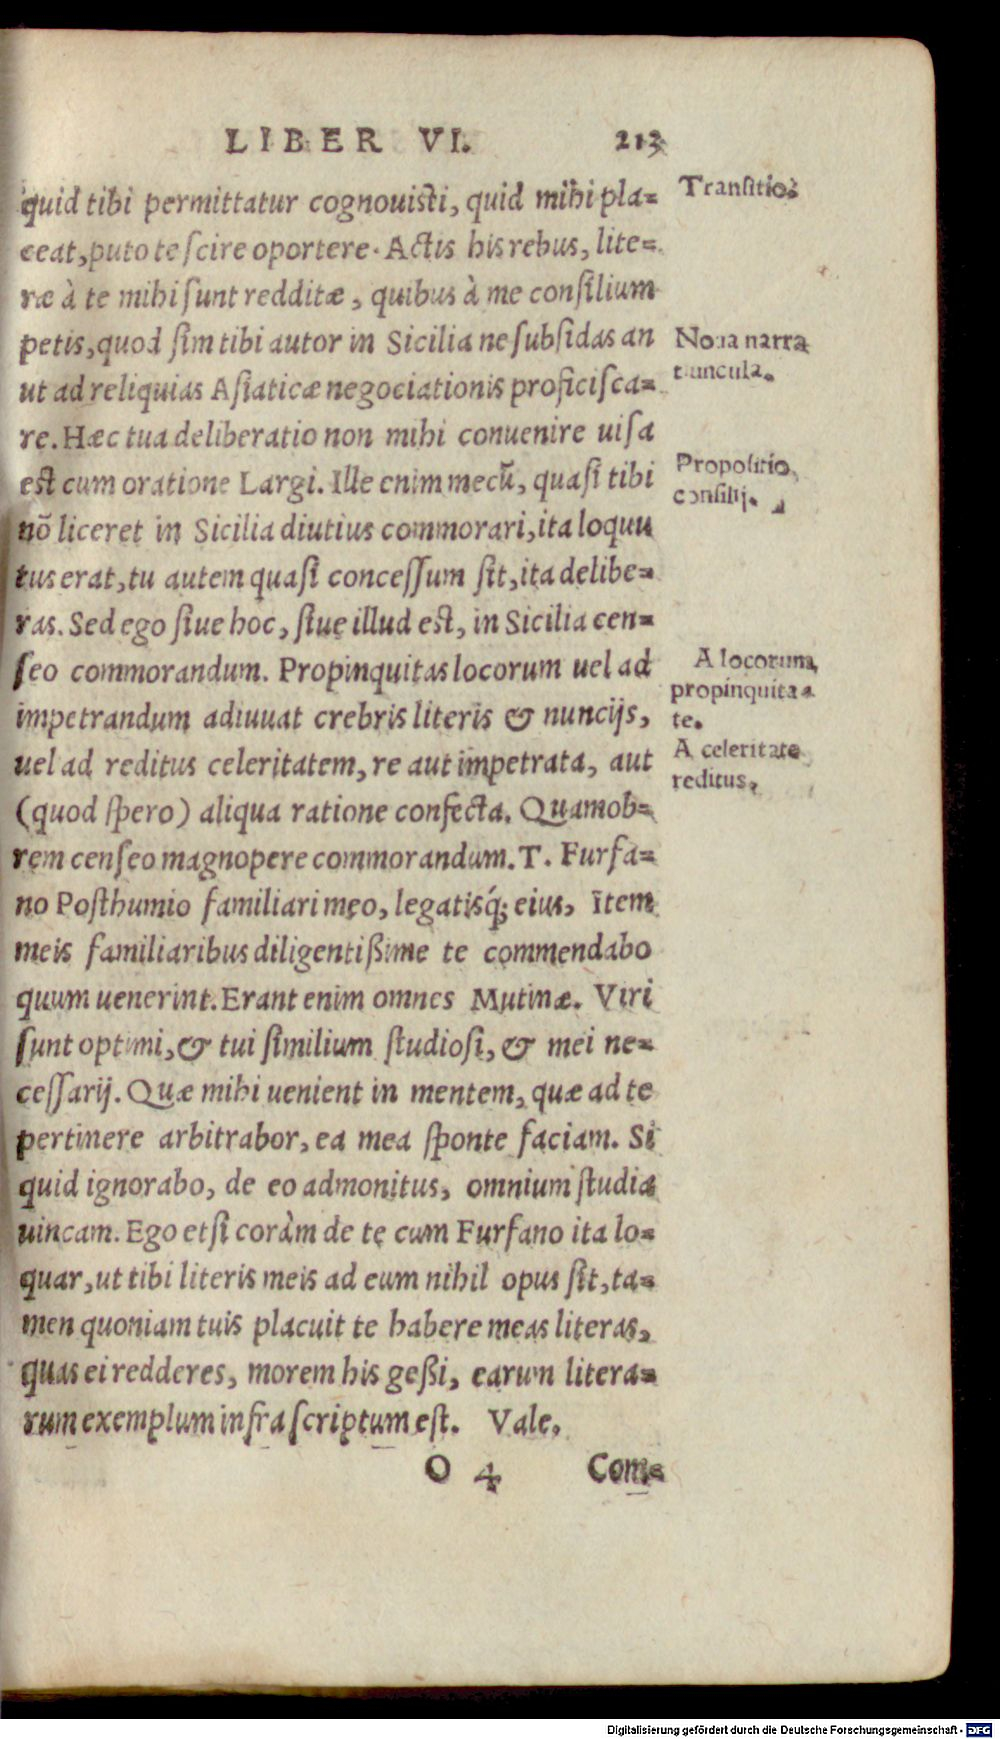 LIBER VI. 213
quid tibi permittatur cognouisti, quid mihi pla=
ceat, puto te scire oportere. Actis his rebus, lite=
ræ à te mihi sunt redditæ, quibus à me consilium
petis, quod sim tibi autor in Sicilia ne subsidas an
ut ad reliquias Asiaticæ negociationis proficisca=
re. Hæc tua deliberatio non mihi conuenire uisa
est cum oratione Largi. Ille enim mecū, quasi tibi
nō liceret in Sicilia diutius commorari, ita loquu
tus erat, tu autem quasi concessum sit, ita delibe=
ras. Sed ego siue hoc, siue illud est, in Sicilia cen=
seo commorandum. Propinquitas locorum uel ad
impetrandum adiuuat crebris literis & nuncijs,
uel ad reditus celeritatem, re aut impetrata, aut
(quod spero) aliqua ratione confecta. Quamob=
rem censeo magnopere commorandum. T. Furfa=
no Posthumio familiari meo, legatisq́; eius, item
meis familiaribus diligentißime te commendabo
quum uenerint. Erant enim omnes Mutinæ. Viri
sunt optimi, & tui similium studiosi, & mei ne=
cessarij. Quæ mihi uenient in mentem, quæ ad te
pertinere arbitrabor, ea mea sponte faciam. Si
quid ignorabo, de eo admonitus, omnium studia
uincam. Ego etsi coràm de te cum Furfano ita lo=
quar, ut tibi literis meis ad eum nihil opus sit, ta=
men quoniam tuis placuit te habere meas literas,
quas ei redderes, morem his geßi, earum litera=
rum exemplum infra scriptum est. Vale.
O 4 Com=
Transitio.
Noua narra
tiuncula.
Propositio
consilij.
A locorum
propinquita=
te.
A celeritate
reditus.
Digitalisierung gefördert durch die Deutsche Forschungsgemeinschaft - DFG